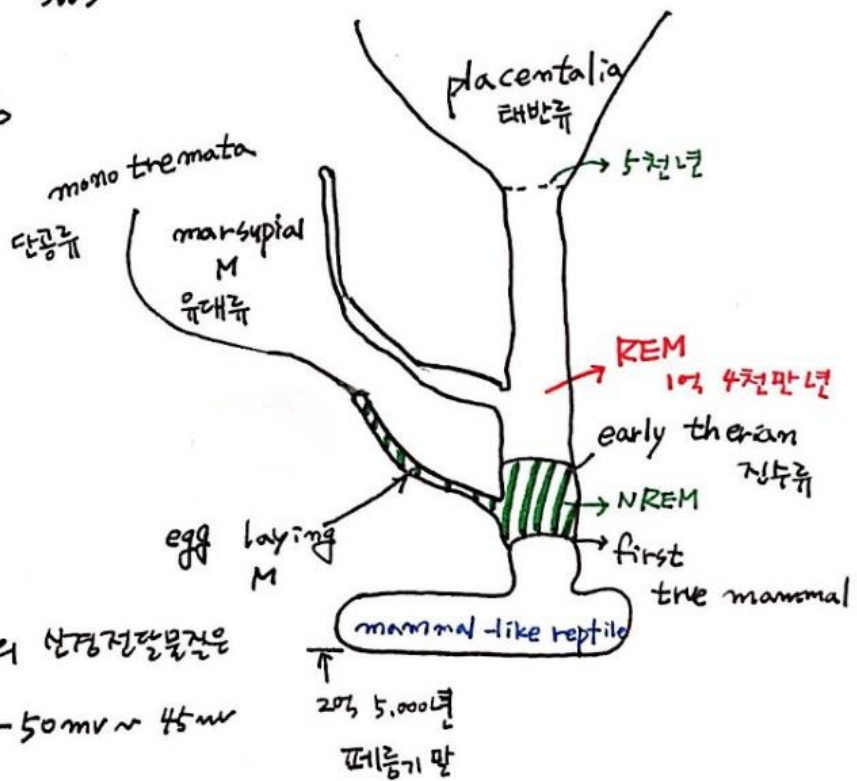 placentalia
태반류
5천년
mono tremata
단공류
marsupial
M
유대류
REM
1억 4천만년
early therian
진수류
NREM
egg laying
M
first
true mammal
mammal-like reptile
신경전달물질은
-50mv ~ 45mv
2억 5,000년
페름기 말